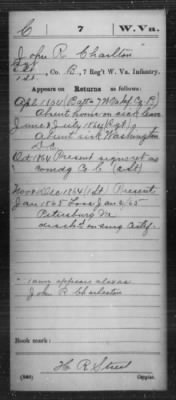 C 7 W.Va.
John R. Charlton
Sgt
1 Lt., Co. B, 7 Reg't W. Va. Infantry.
Appears on Returns as follows:
Apl 1864 (Batt 7 W Va Inf Co B)
Absent home on sick leave
June & July 1864 (Sgt)
Absent sick Washington
D.C.
Oct 1864 Present
comdg Co C (1 Lt)
Nov & Dec 1864 (1 Lt) Present
Jan 1865 Loss Jan 2/65
Petersburg Va
Name appears also as
John R. Charleston
Book mark:
H. R. Street
(546) Copyist.